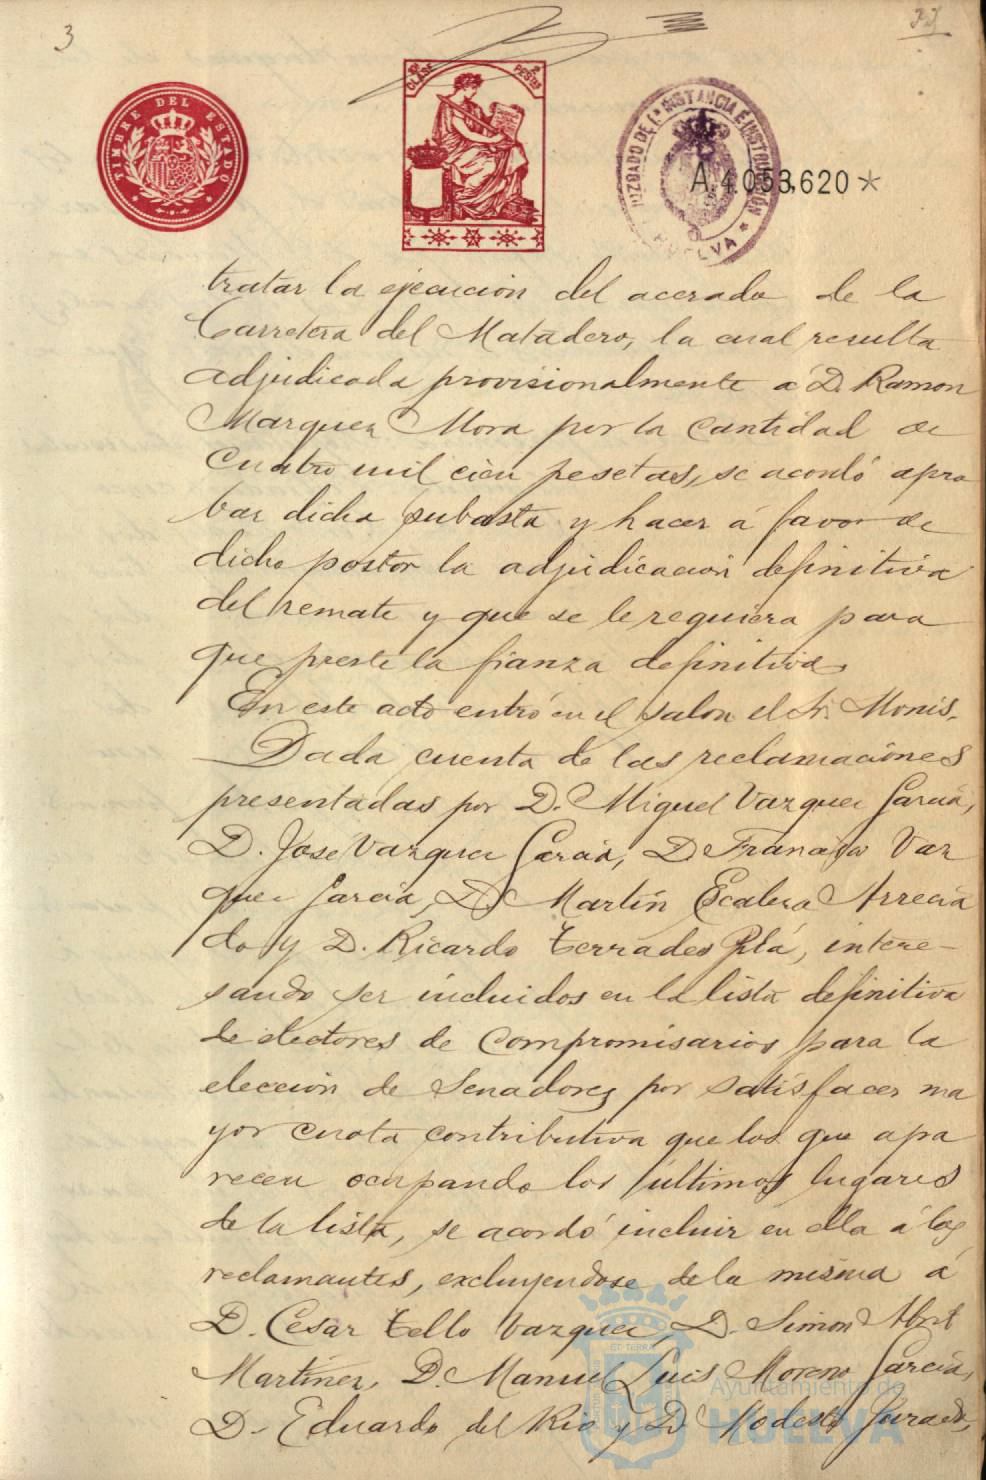 3
TIMBRE DEL ESTADO
CLASE
PESTAS
JUZGADO DE 1ª INSTANCIA E INSTRUCCIÓN
HUELVA
A.4.053,620*
tratar la ejecucion del acerado de la
Carretera del Matadero, la cual resulta
adjudicada provisionalmente a D. Ramon
Marquez Mora por la cantidad de
cuatro mil cien pesetas, se acordó apro
bar dicha subasta y hacer á favor de
dicho postor la adjudicacion definitiva
del remate y que se le requiera para
que preste la fianza definitiva.
En este acto entró en el salon el Sr. Monis.
Dada cuenta de las reclamaciones
presentadas por D. Miguel Vazquez Garcia,
D. Jose Vazquez Garcia, D. Francisco Vaz
quez Garcia, D. Martín Escalera Arrecia
do y D. Ricardo Terrades Plá, intere-
sando ser incluidos en la lista definitiva
de electores de Compromisarios para la
elección de Senadores por satisfacer ma
yor cuota contributiva que los que apa
recen ocupando los últimos lugares
de la lista, se acordó incluir en ella á los
reclamantes, excluyendose de la misma á
D. Cesar Tello Vazquez, D. Simon
Martinez, D. Manuel Luis Moreno Garcia,
D. Eduardo del Rio y D. Modesto Jurado,
ET TERRÆ
Ayuntamiento de
HUELVA